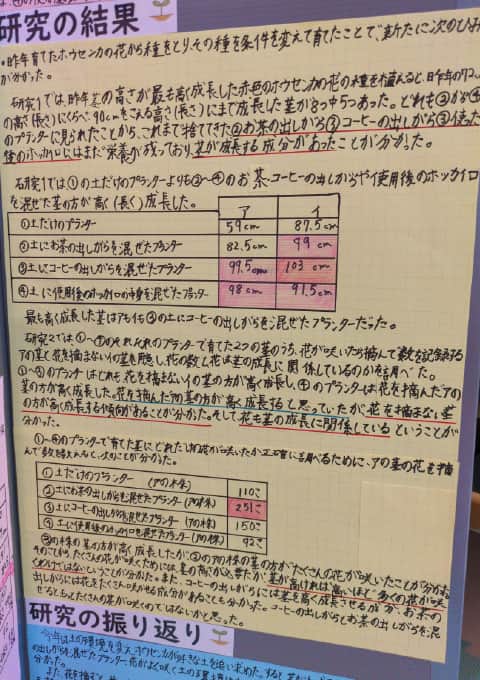 研究の結果
・昨年育てたホウセンカの花から種をとり、その種を条件を変えて育てたことで、新たに次のひみ
が分かった。
研究1では、昨年茎の高さが最も高く成長した赤色のホウセンカの花の種を植えると、昨年の92
の高さ(長さ)にくらべ、90cmをこえる高さ(長さ)にまで成長した茎が8つ中5つあった。どれも②から④
のプランターに見られたことから、これまで捨ててきた②お茶の出しがら③コーヒーの出しがら④使った
後のホッカイロにはまだ栄養が残っており、茎が成長する成分があったことが分かった。
研究1では①の土だけのプランターよりも②〜④のお茶、コーヒーの出しがらや使用後のホッカイロ
を混ぜた茎の方が高く(長く)成長した。
ア イ
①土だけのプランター 59cm 87.5cm
②土にお茶の出しがらを混ぜたプランター 82.5cm 99cm
③土にコーヒーの出しがらを混ぜたプランター 99.5cm 103cm
④土に使用後のホッカイロの中身を混ぜたプランター 98cm 91.5cm
最も高く成長した茎はアもイも③の土にコーヒーの出しがらを混ぜたプランターだった。
研究2では①〜④のそれぞれのプランターで育てた2つの茎のうち、花が咲いたら摘んで数を記録する
アの茎と花を摘まないイの茎を用意し、花の数と花は茎の成長に関係しているのかを調べた。
①〜③のプランターはどれも花を摘まないイの茎の方が高く成長し、④のプランターは花を摘んだアの
茎の方が高く成長した。花を摘んだアの茎の方が高く成長すると思っていたが、花を摘まない茎
の方が高く成長する傾向があることが分かった。そして花も茎の成長に関係しているということが
分かった。
①〜④のプランターで育てた茎にどれだけの花が咲いたか正確に調べるために、アの茎の花を摘
んで数を数えると、次のことが分かった。
①土だけのプランター (アの株) 110こ
②土にお茶の出しがらを混ぜたプランター(アの株) 251こ
③土にコーヒーの出しがらを混ぜたプランター(アの株) 150こ
④土に使用後のホッカイロを混ぜたプランター(アの株) 92こ
③の株の茎の方が高く成長したが②のアの株の茎の方がたくさんの花が咲いたことが分かった。
そのことから、たくさんの花が咲くためには、茎の高さが必要だが、茎が高ければ高いほど多くの花が咲
くわけではないということが分かった。また、コーヒーの出しがらには茎を高く成長させる成分、お茶の
出しがらには花をたくさん咲かせる成分があることも分かった。コーヒーの出しがらとお茶の出しがらを混
ぜるともっとたくさんの茎が咲くのではないかと思った。
研究の振り返り
今年は土の環境を変え、ホウセンカが好きな土を追い求めた。